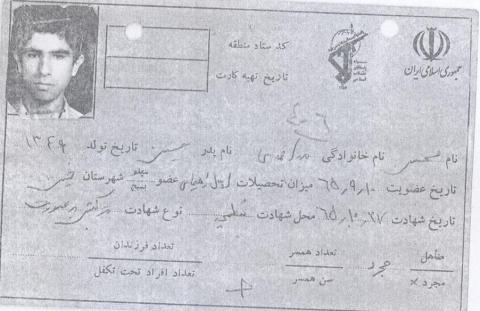 جمهوری اسلامی ایران
کد ستاد منطقه
تاریخ تهیه کارت
نام محسن نام خانوادگی نام پدر حسین تاریخ تولد ۱۳۴۹
تاریخ عضویت ۶۵/۹/۱۰ میزان تحصیلات اول راهنمایی عضو بسیج شهرستان
تاریخ شهادت ۶۵/۱۰/۲۷ محل شهادت نوع شهادت
متأهل
مجرد ×
مجرد
تعداد همسر
سن همسر
تعداد فرزندان
تعداد افراد تحت تکفل